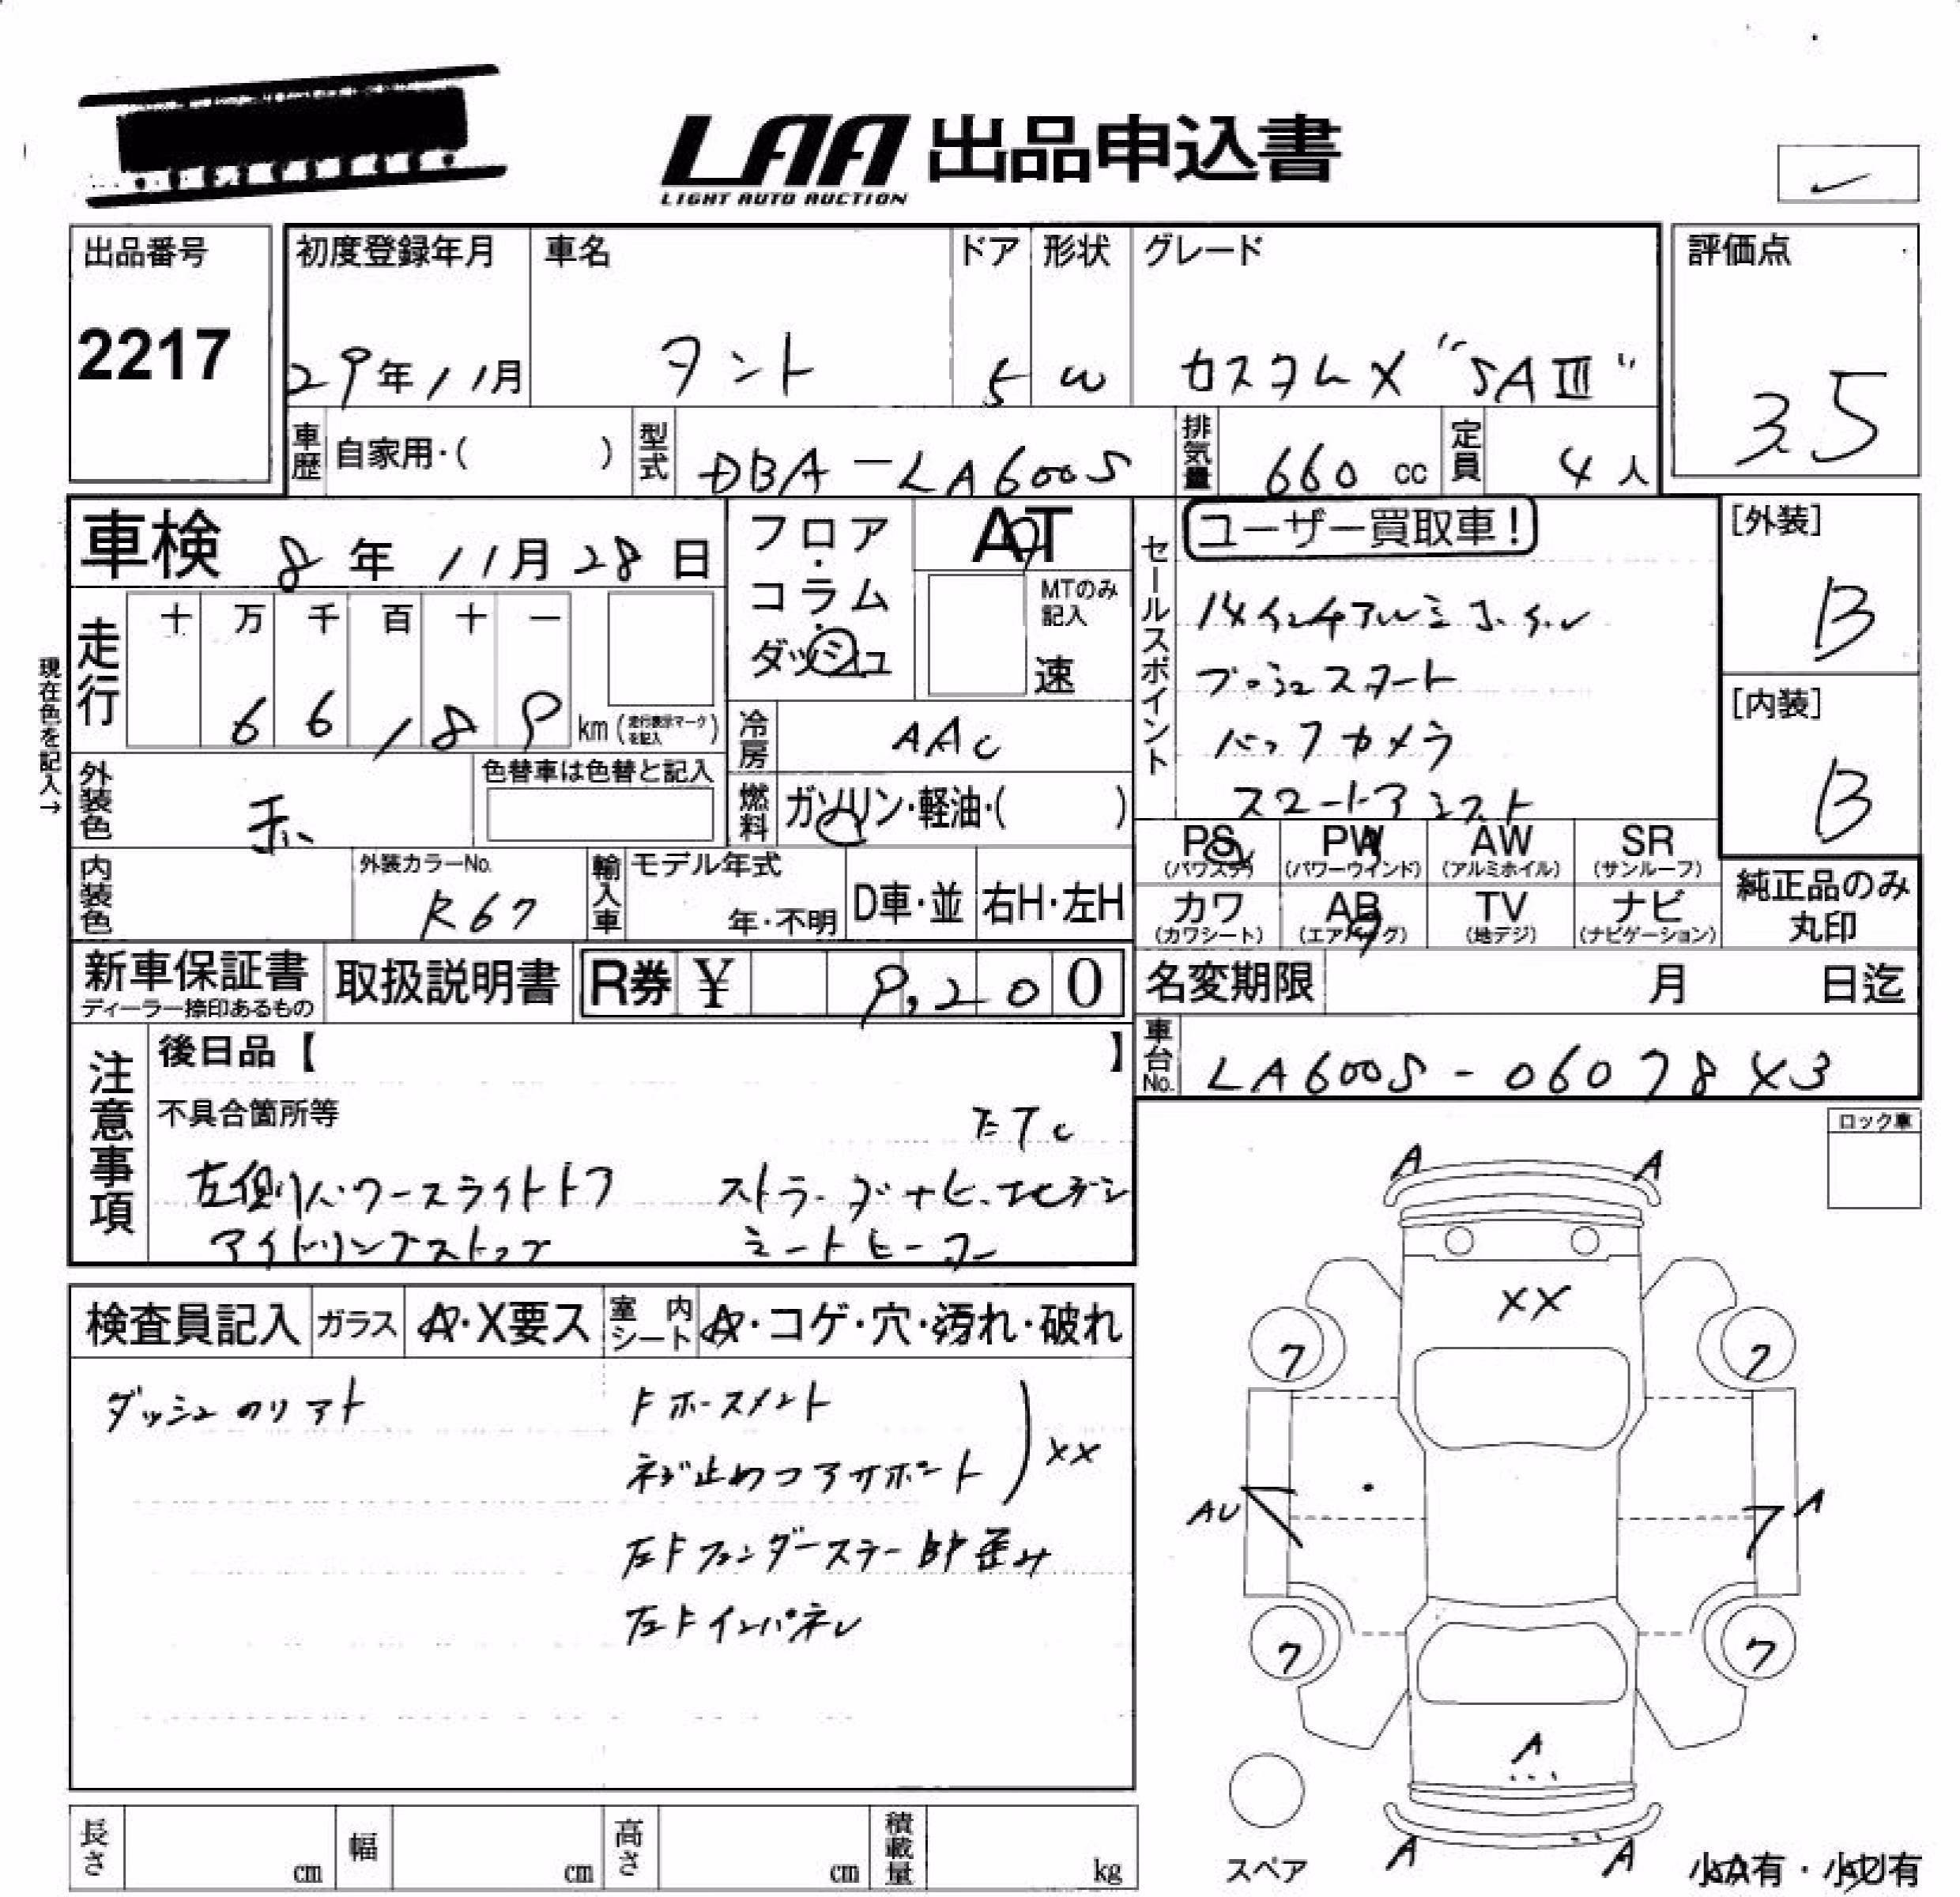 LAA 出品申込書
LIGHT AUTO AUCTION
出品番号
2217
初度登録年月
29年11月
車名
タント
ドア
5
形状
W
グレード
カスタムX "SAⅢ"
評価点
3.5
車歴 自家用・( )
型式 DBA-LA600S
排気量 660 cc
定員 4人
車検 8年11月28日
フロア・コラム・ダッシュ
AT
MTのみ記入
速
セールスポイント
ユーザー買取車!
14インチアルミホイル
プッシュスタート
バックカメラ
スマートアシスト
[外装]
B
[内装]
B
現在色を記入→
走行 十 万 千 百 十 一
66189 km (走行表示マークを記入)
冷房 AAC
外装色 赤
色替車は色替と記入
燃料 ガソリン・軽油・( )
PS (パワステ)
PW (パワーウインド)
AW (アルミホイル)
SR (サンルーフ)
内装色
外装カラーNo. R67
輸入車 モデル年式
年・不明
D車・並
右H・左H
カワ (カワシート)
AB (エアバッグ)
TV (地デジ)
ナビ (ナビゲーション)
純正品のみ丸印
新車保証書
ディーラー捺印あるもの
取扱説明書
R券 ¥ 9,200
名変期限 月 日迄
注意事項
後日品【 】
車台No. LA600S-0607843
不具合箇所等
ETC
左側パワースライドドア
ストラーダナビ、フルセグ
アイドリングストップ
シートヒーター
ロック車
検査員記入
ガラス A・X要ス
室内シート A・コゲ・穴・汚れ・破れ
ダッシュのりアト
Fホースメント
ネジ止めコアサポート
XX
左Fフェンダーステー部歪み
左Fインパネル
A
A
XX
7
7
AU
A
7
7
A
A
A
スペア
小A有・小U有
長さ cm
幅 cm
高さ cm
積載量 kg